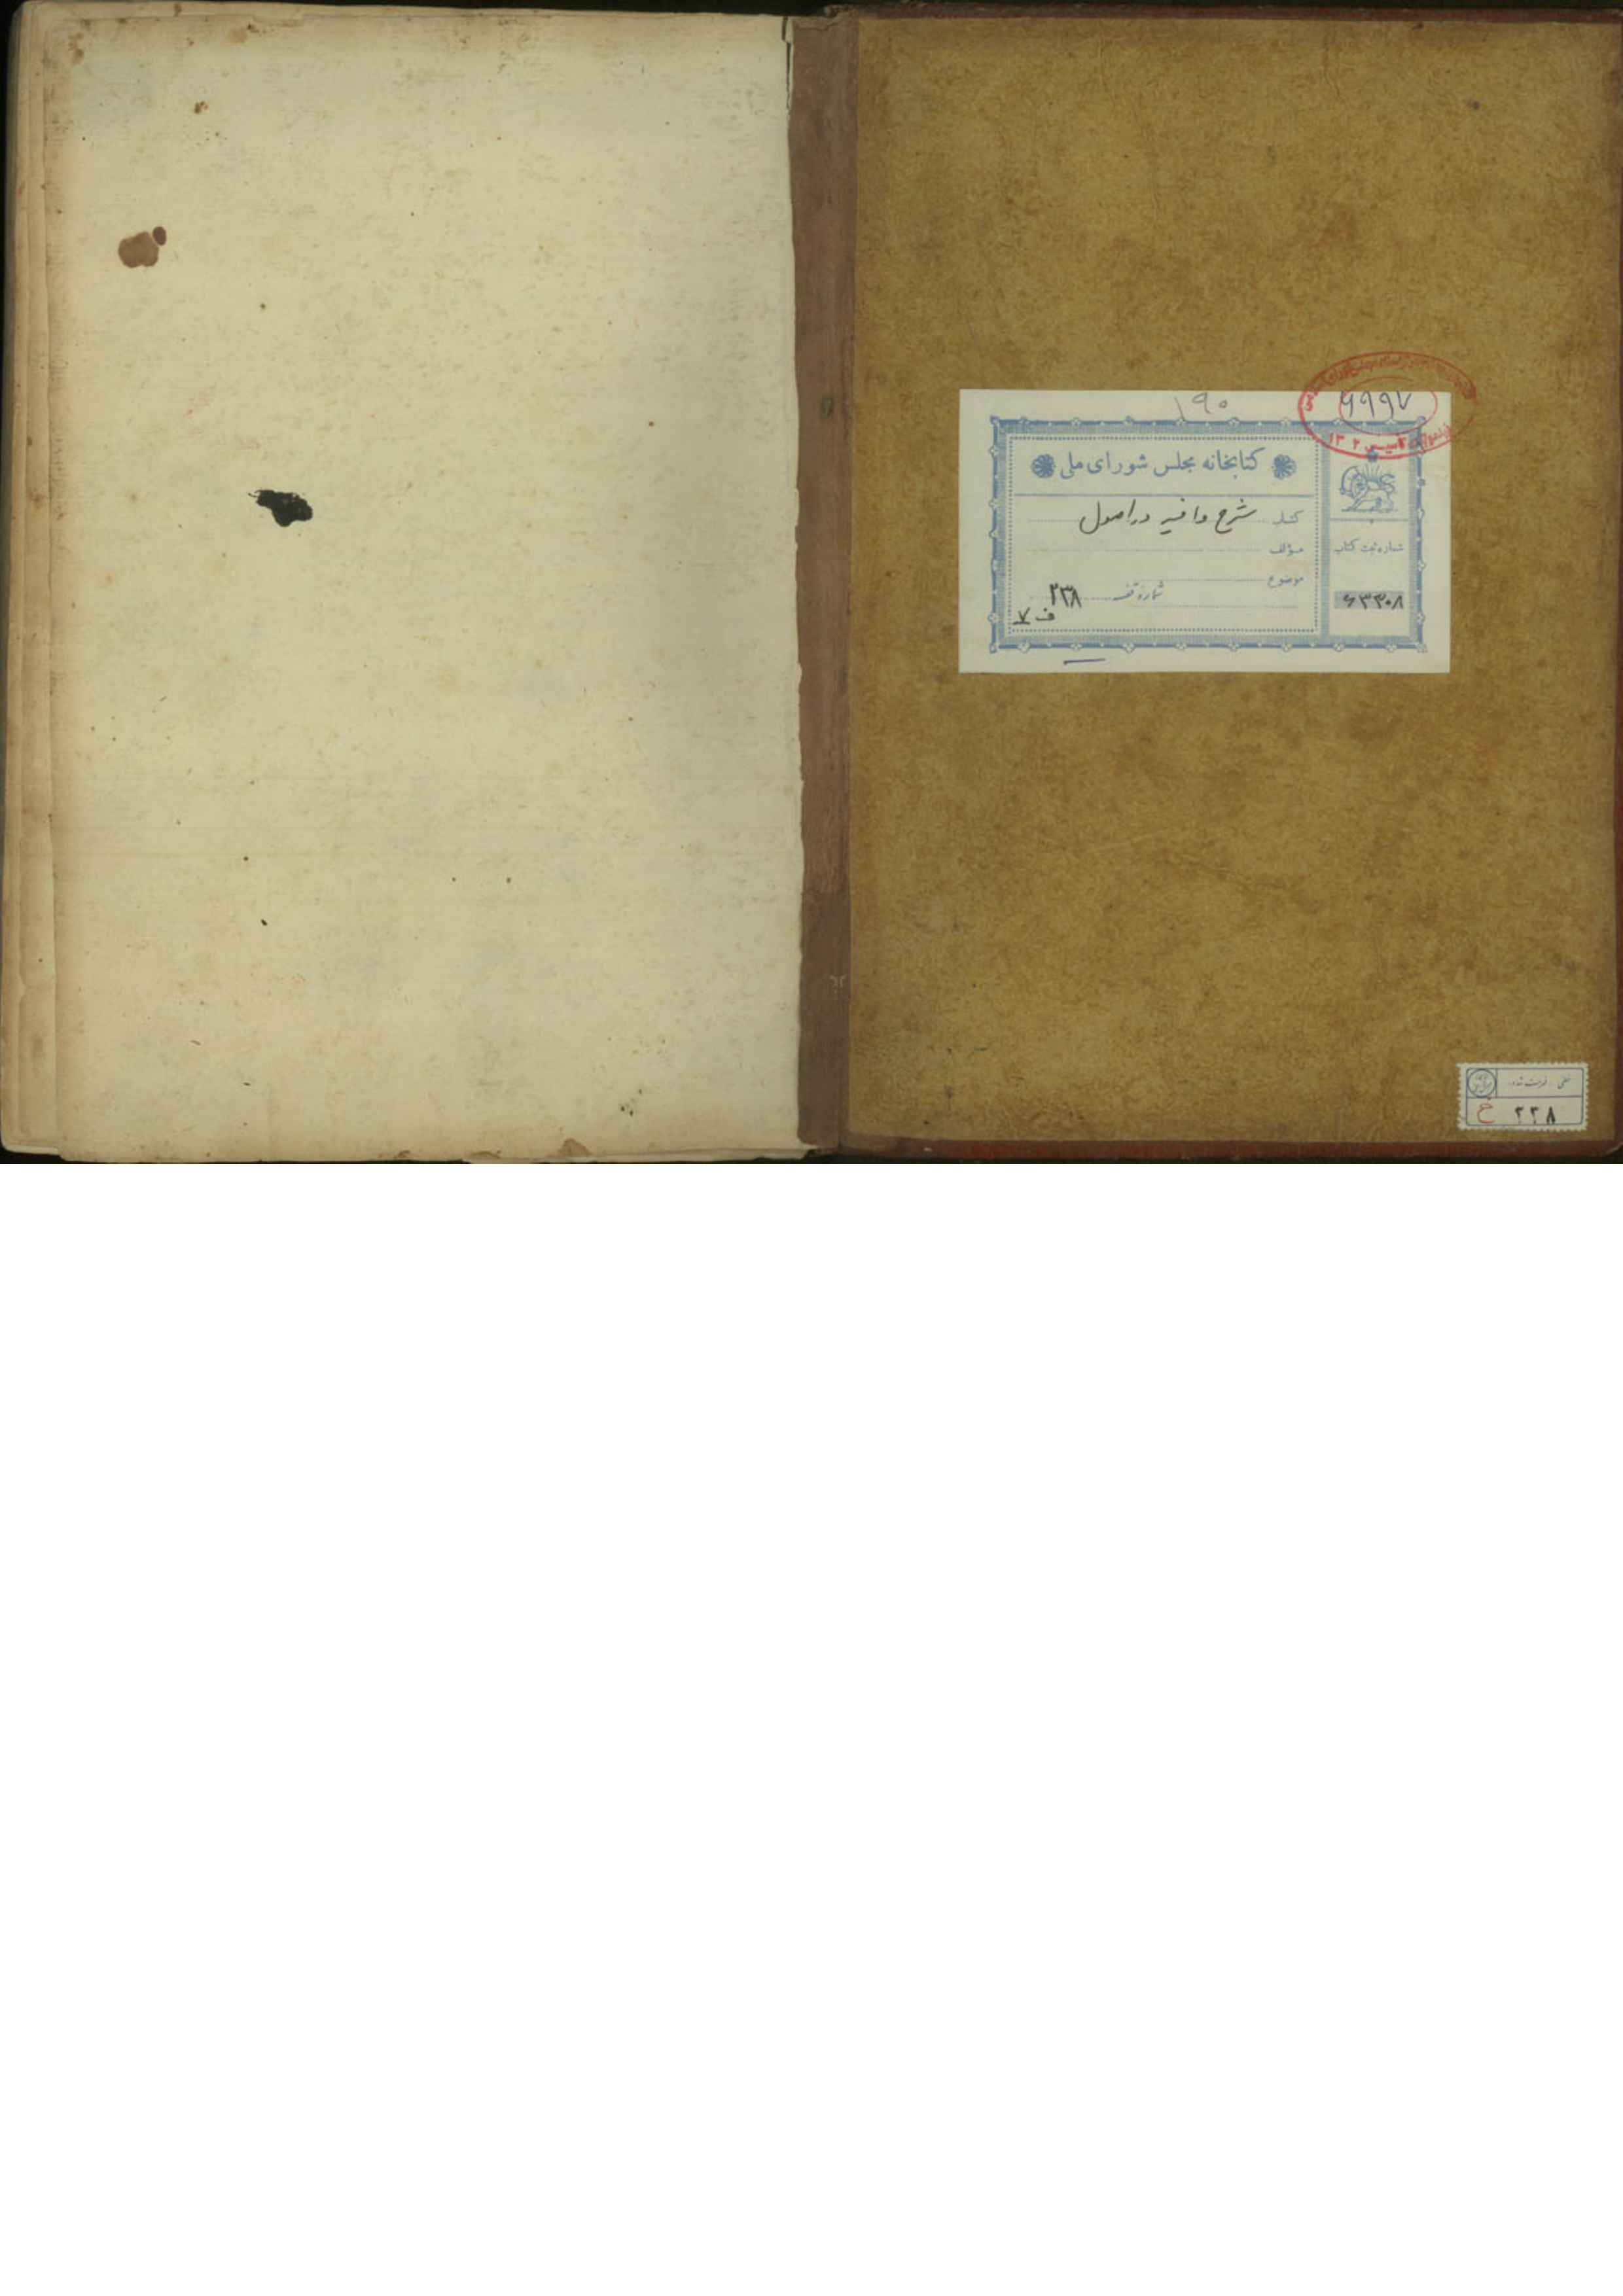 ۱۹۰
۶۹۹۷
تأسیس ۱۳۰۲
کتابخانه مجلس شورای ملی
کتاب شرح وافیه در اصول
مؤلف
موضوع
شماره قفسه ۲۳۸
ف ۷
شماره ثبت کتاب
۶۳۳۰۸
خطی . فهرست شده
خ ۲۳۸